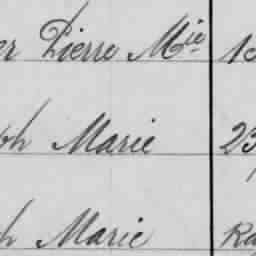 er Pierre Mie 10
ph Marie 23
h Marie Ra